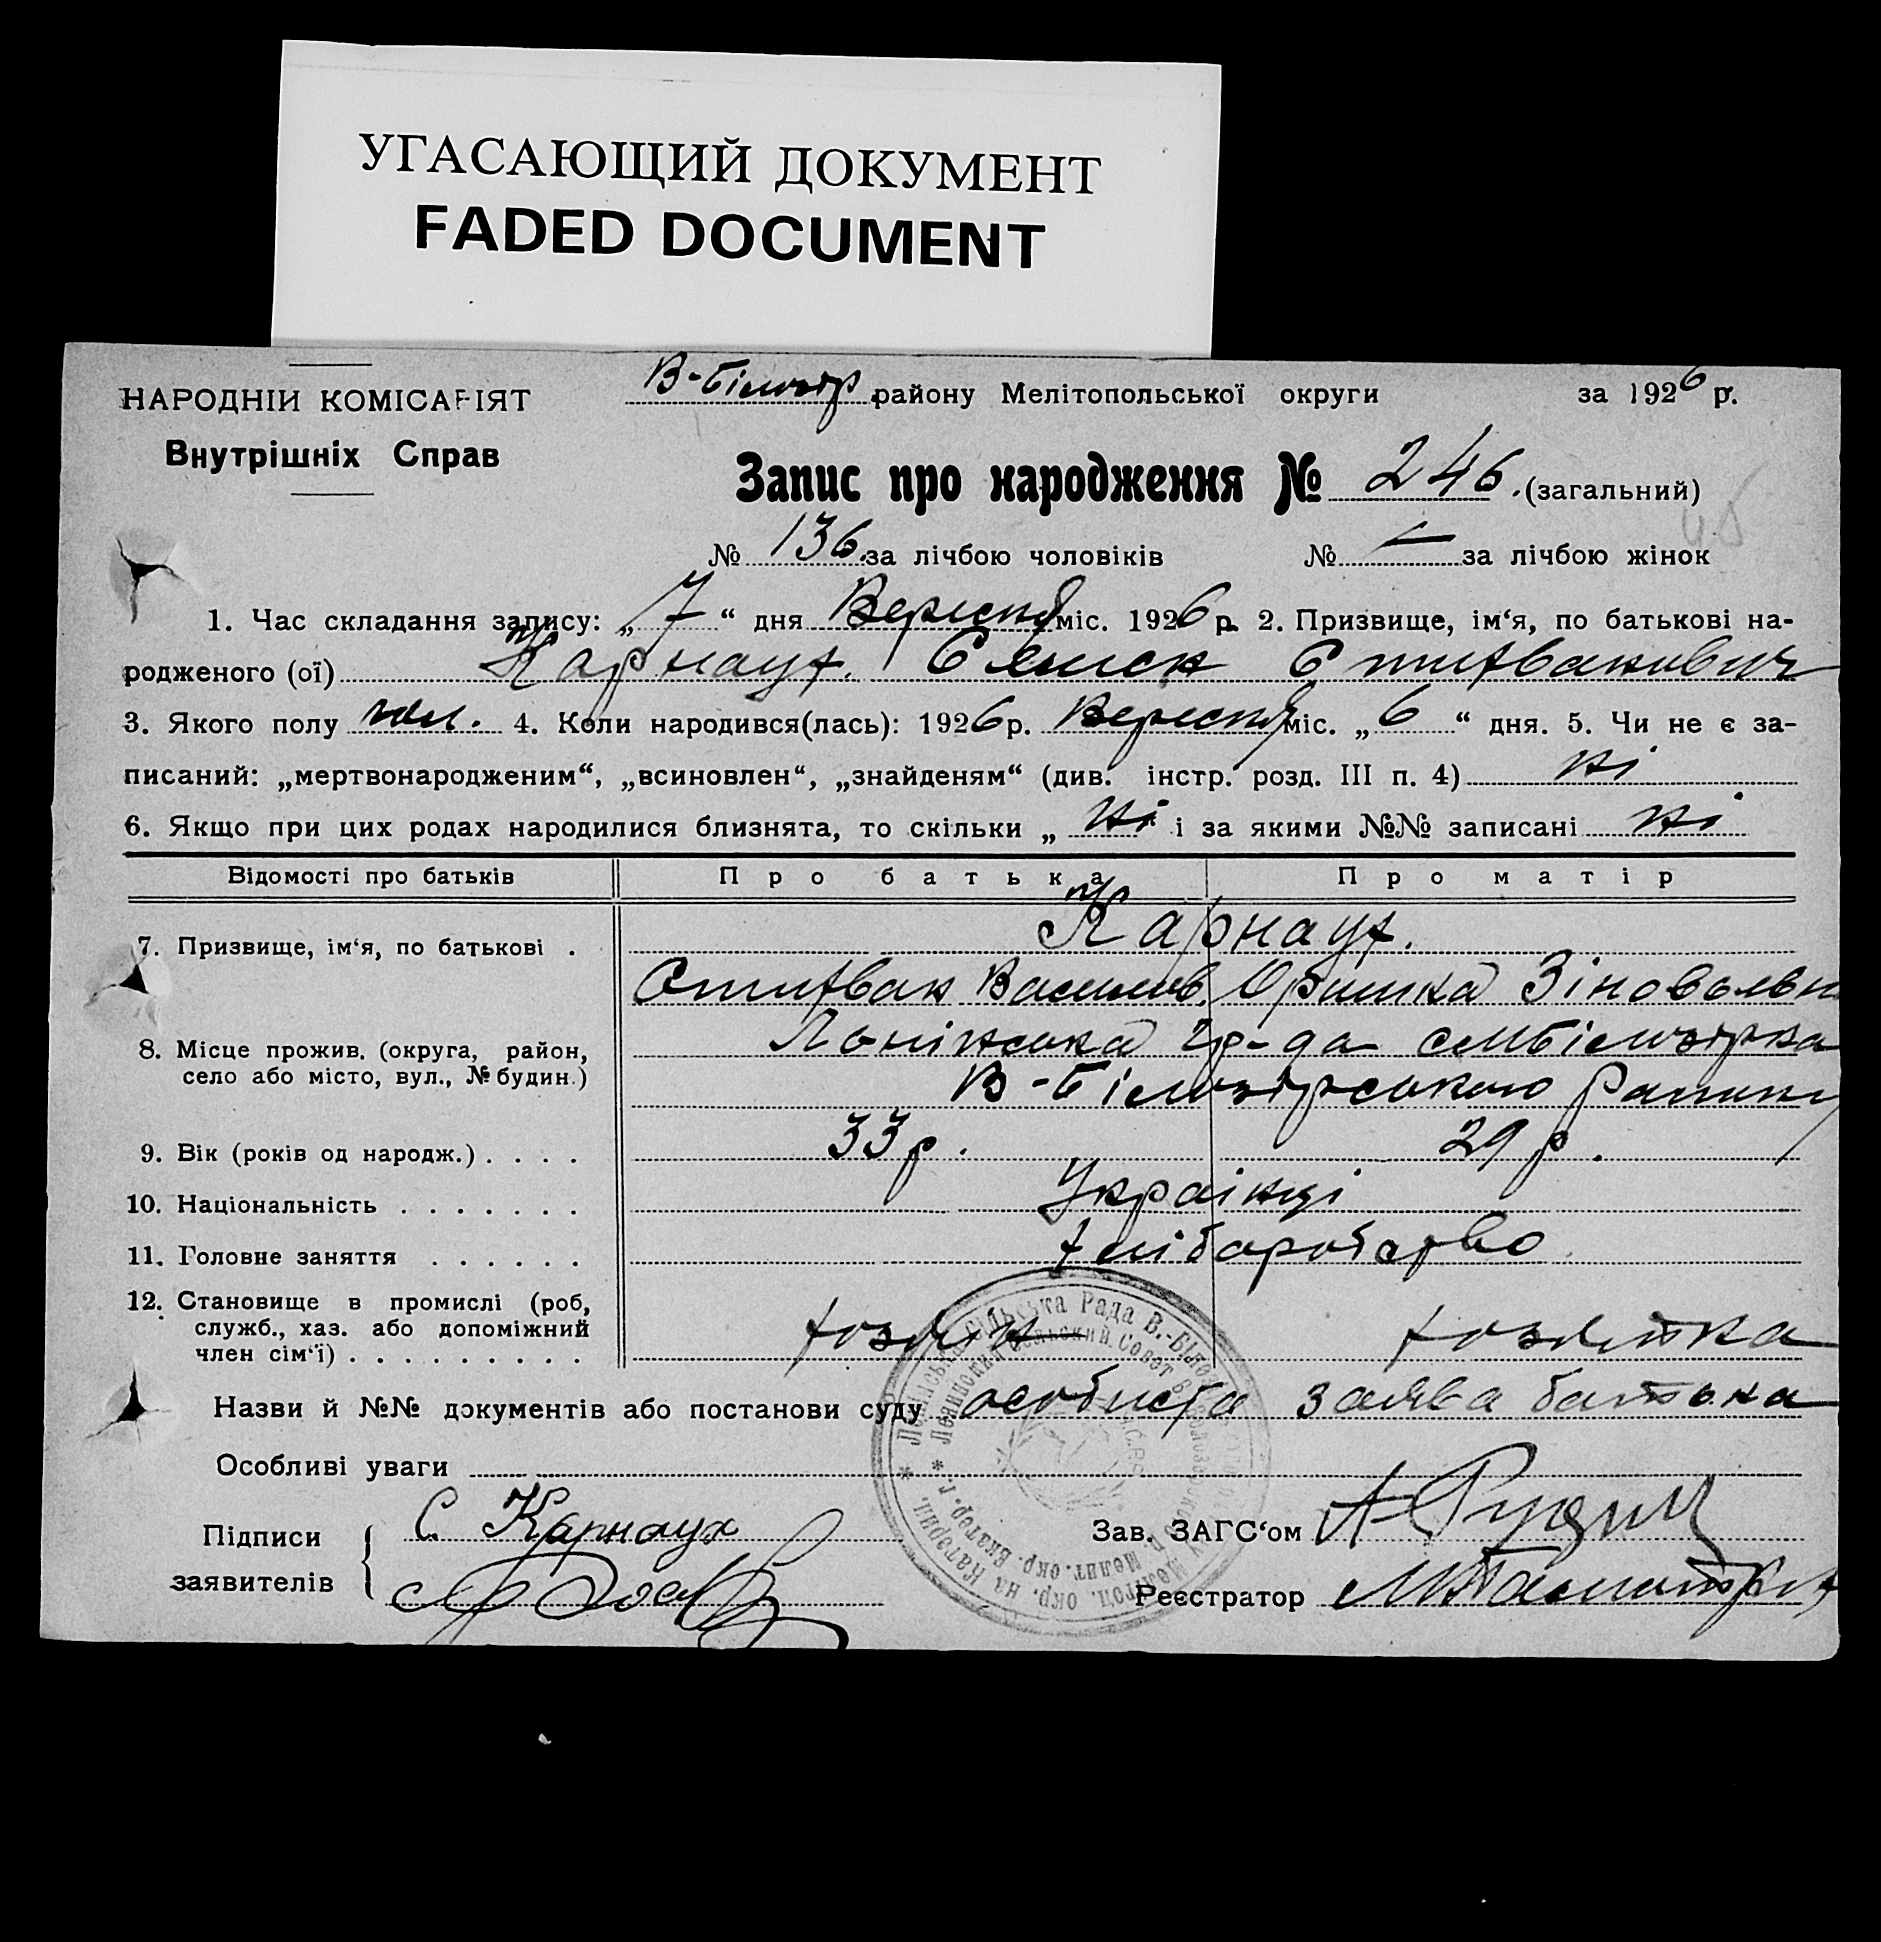 УГАСАЮЩИЙ ДОКУМЕНТ
FADED DOCUMENT
НАРОДНІЙ КОМІСАРІЯТ
Внутрішніх Справ
В-Білозір. району Мелітопольської округи за 1926 р.
Запис про народження № 246. (загальний)
№ 136. за лічбою чоловіків № — за лічбою жінок
1. Час складання запису: „7“ дня Вересня міс. 1926 р. 2. Призвище, ім‘я, по батькові на-
родженого (ої) Карнаух.
3. Якого полу чол. 4. Коли народився(лась): 1926 р. Вересня міс. „6“ дня. 5. Чи не є за-
писаний: „мертвонародженим“, „всиновлен“, „знайденям“ (див. інстр. розд. III п. 4) ні
6. Якщо при цих родах народилися близнята, то скільки „ ні і за якими №№ записані ні
Відомості про батьків Про батька Про матір
7. Призвище, ім‘я, по батькові . Карнаух.
Василів. Оришка Зіновьевн
8. Місце прожив. (округа, район,
село або місто, вул., № будин.)
гр-да
В-Білозірського Району
9. Вік (років од народж.) . . . . 33 р. 29 р.
10. Національність . . . . . . . Українці
11. Головне заняття . . . . . . хліборобство
12. Становище в промислі (роб,
служб., хаз. або допоміжний
член сім‘ї) . . . . . . . . . хозяїн хозяйка
Назви й №№ документів або постанови суду особиста заява батька
Особливі уваги
Підписи
заявителів
С. Карнаух
Зав. ЗАГС‘ом
Реєстратор